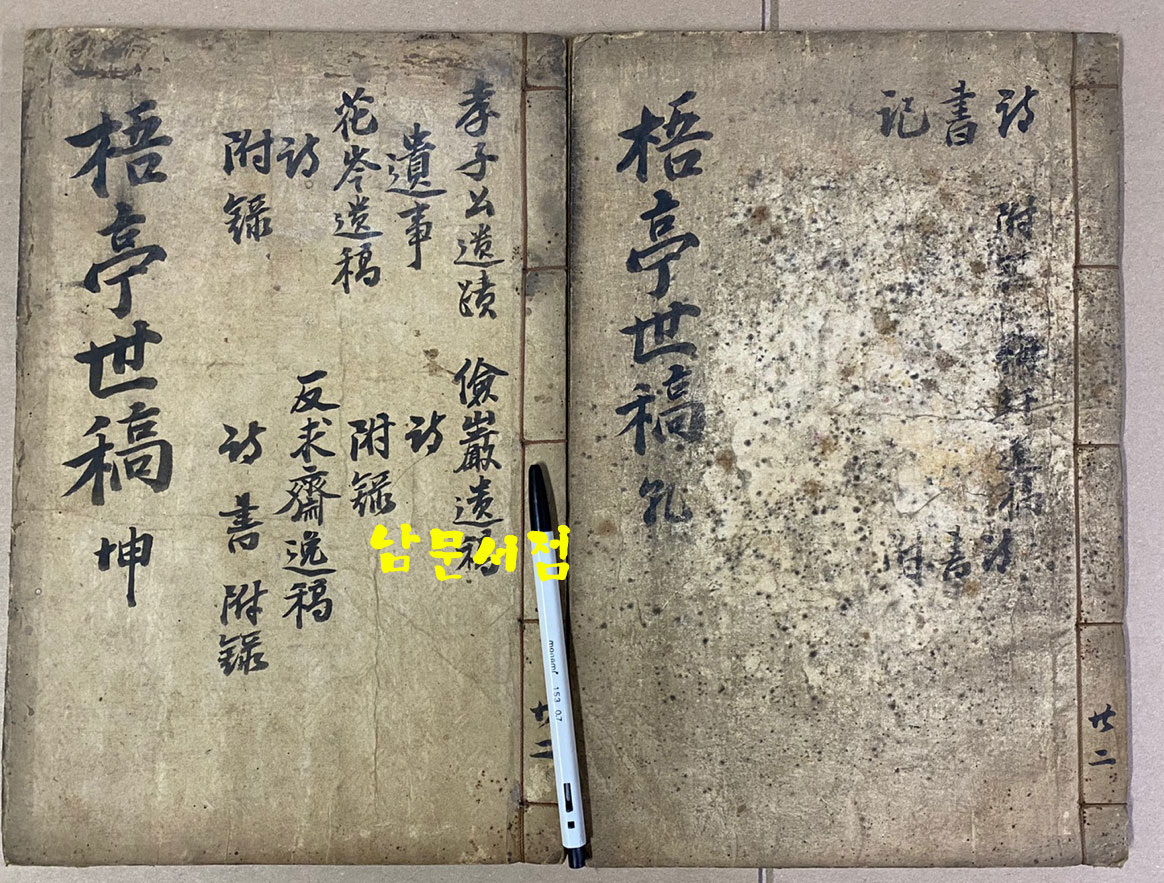 詩
書
記
附
遺稿 詩
書
附
梧亭世稿 乾
共二
孝子公遺蹟
遺事
花岑遺稿
詩
附錄
儉巖遺稿
詩
附錄
反求齋逸稿
詩 書 附錄
梧亭世稿 坤
共二
남문서점
monami 153 0.7